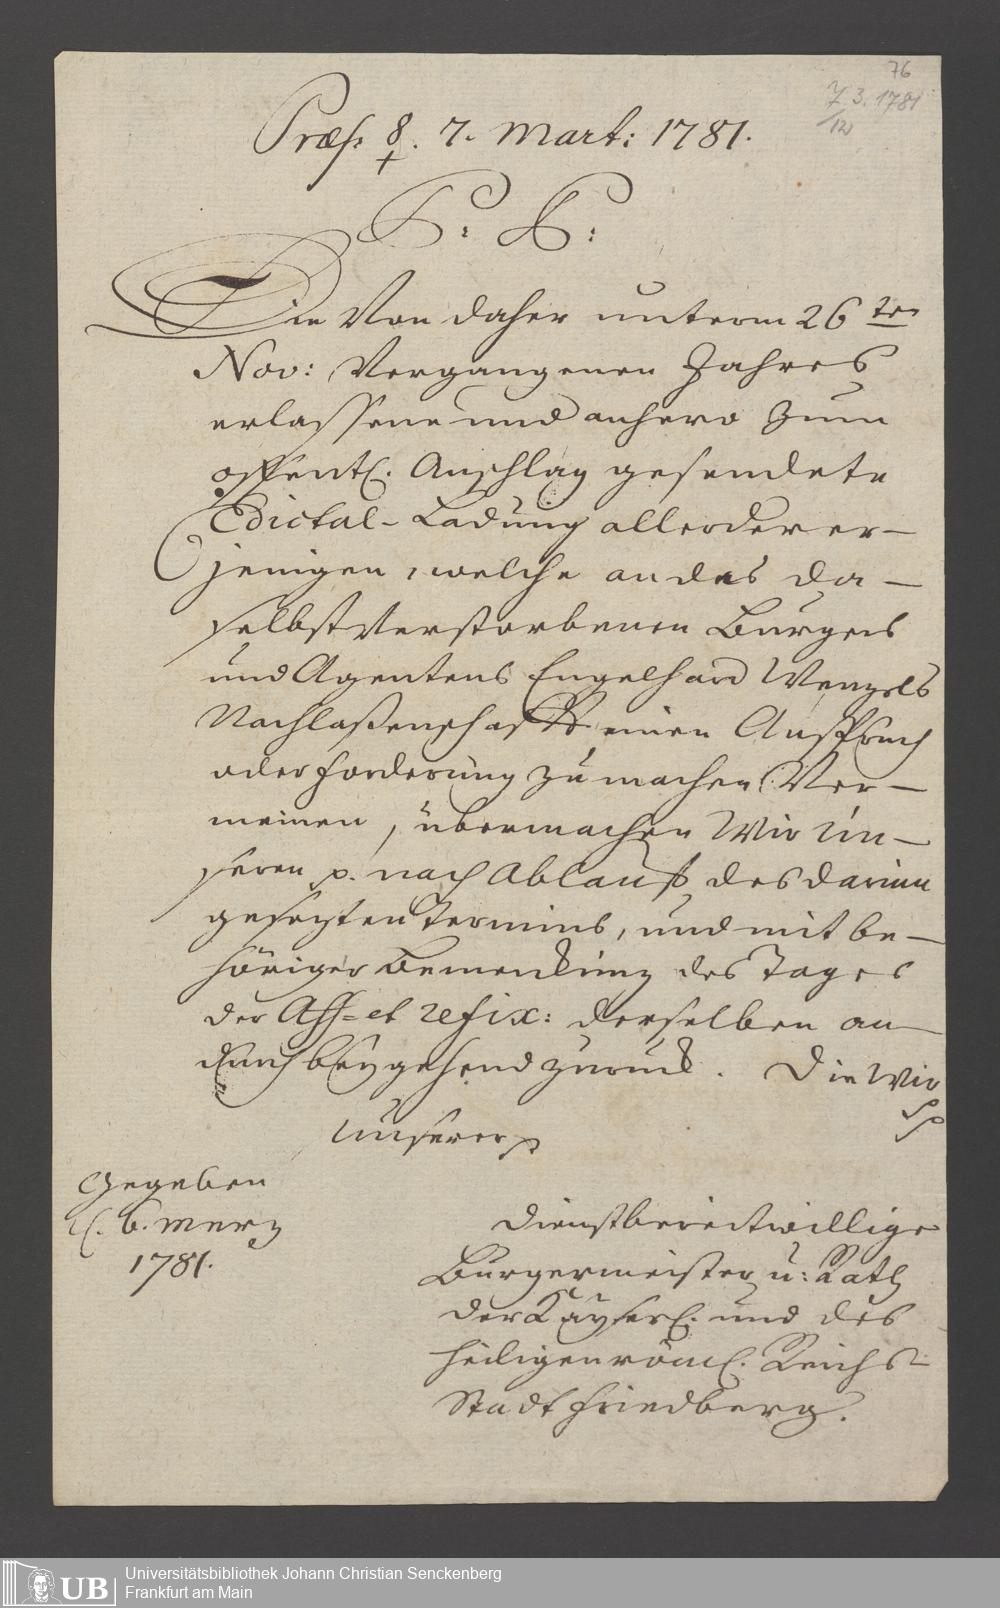 76
7.3.1781
/12
Præs. 8. 7. Mart: 1781.
P. P:
Die Von daher unterm 26ten
Nov: Vergangenen Jahres
erlassene und anhero zum
offentl. Anschlag gesendete
Edictal-Ladung aller der er-
jenigen, welche an des da-
selbst Verstorbenen Burgers
und Agentens Engelhard Wenzels
Nachlaßenschafft einen Anspruch
oder Forderung zu machen Ver-
meinen, übermachen Wir Un-
seren p. nach Ablauff des darinn
gesezten Termins, und mit be-
höriger Bemerkung des Tages
der Aff- et refix: derselben an-
durch beygehend zuruck. Die Wir
Unserer p
Gegeben
d. 6. Merz
1781.
Dienstbereitwillige
Burgermeister u: Rath
der Kayserl. und des
heiligen röml. Reichs-
Stadt Friedberg.
UB
Universitätsbibliothek Johann Christian Senckenberg
Frankfurt am Main